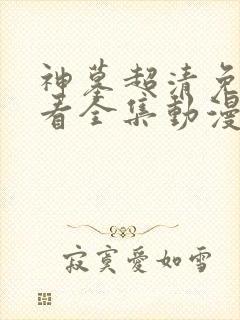 神墓超清免
看全集動漫
寂寞愛如雪